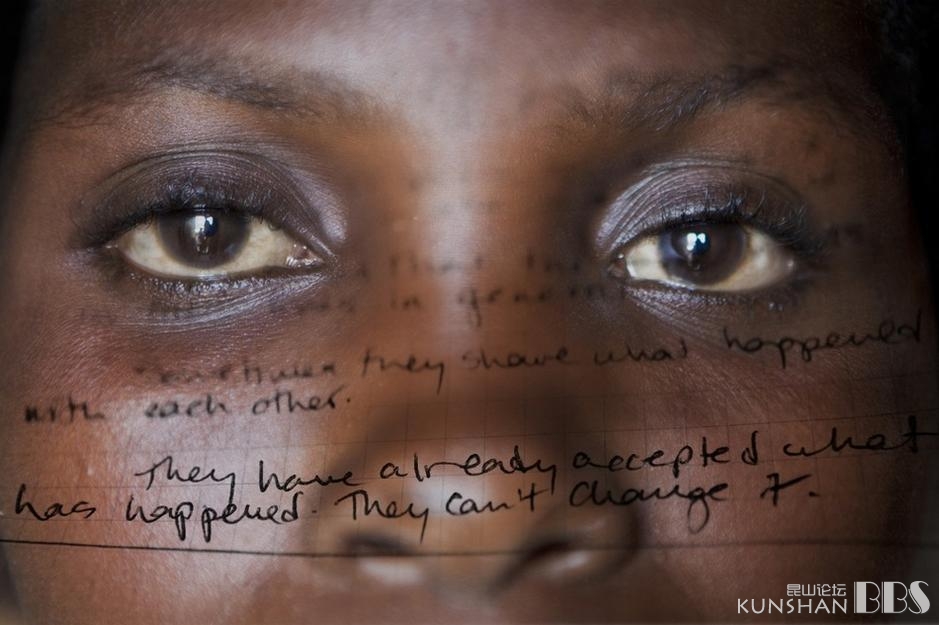 that the
in general
Sometimes they share what happened
with each other.
They have already accepted what
has happened. They can't change it.
昆山论坛
KUNSHAN BBS